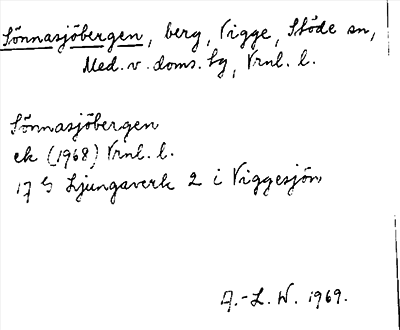 Sönnasjöbergen, berg, Vigge, Stöde sn,
Med. v. doms. tg, Vrnl. l.
Sönnasjöbergen
ek (1968) Vrnl. l.
17 G Ljungaverk 2 i Viggesjön
A.-L. W. 1969.